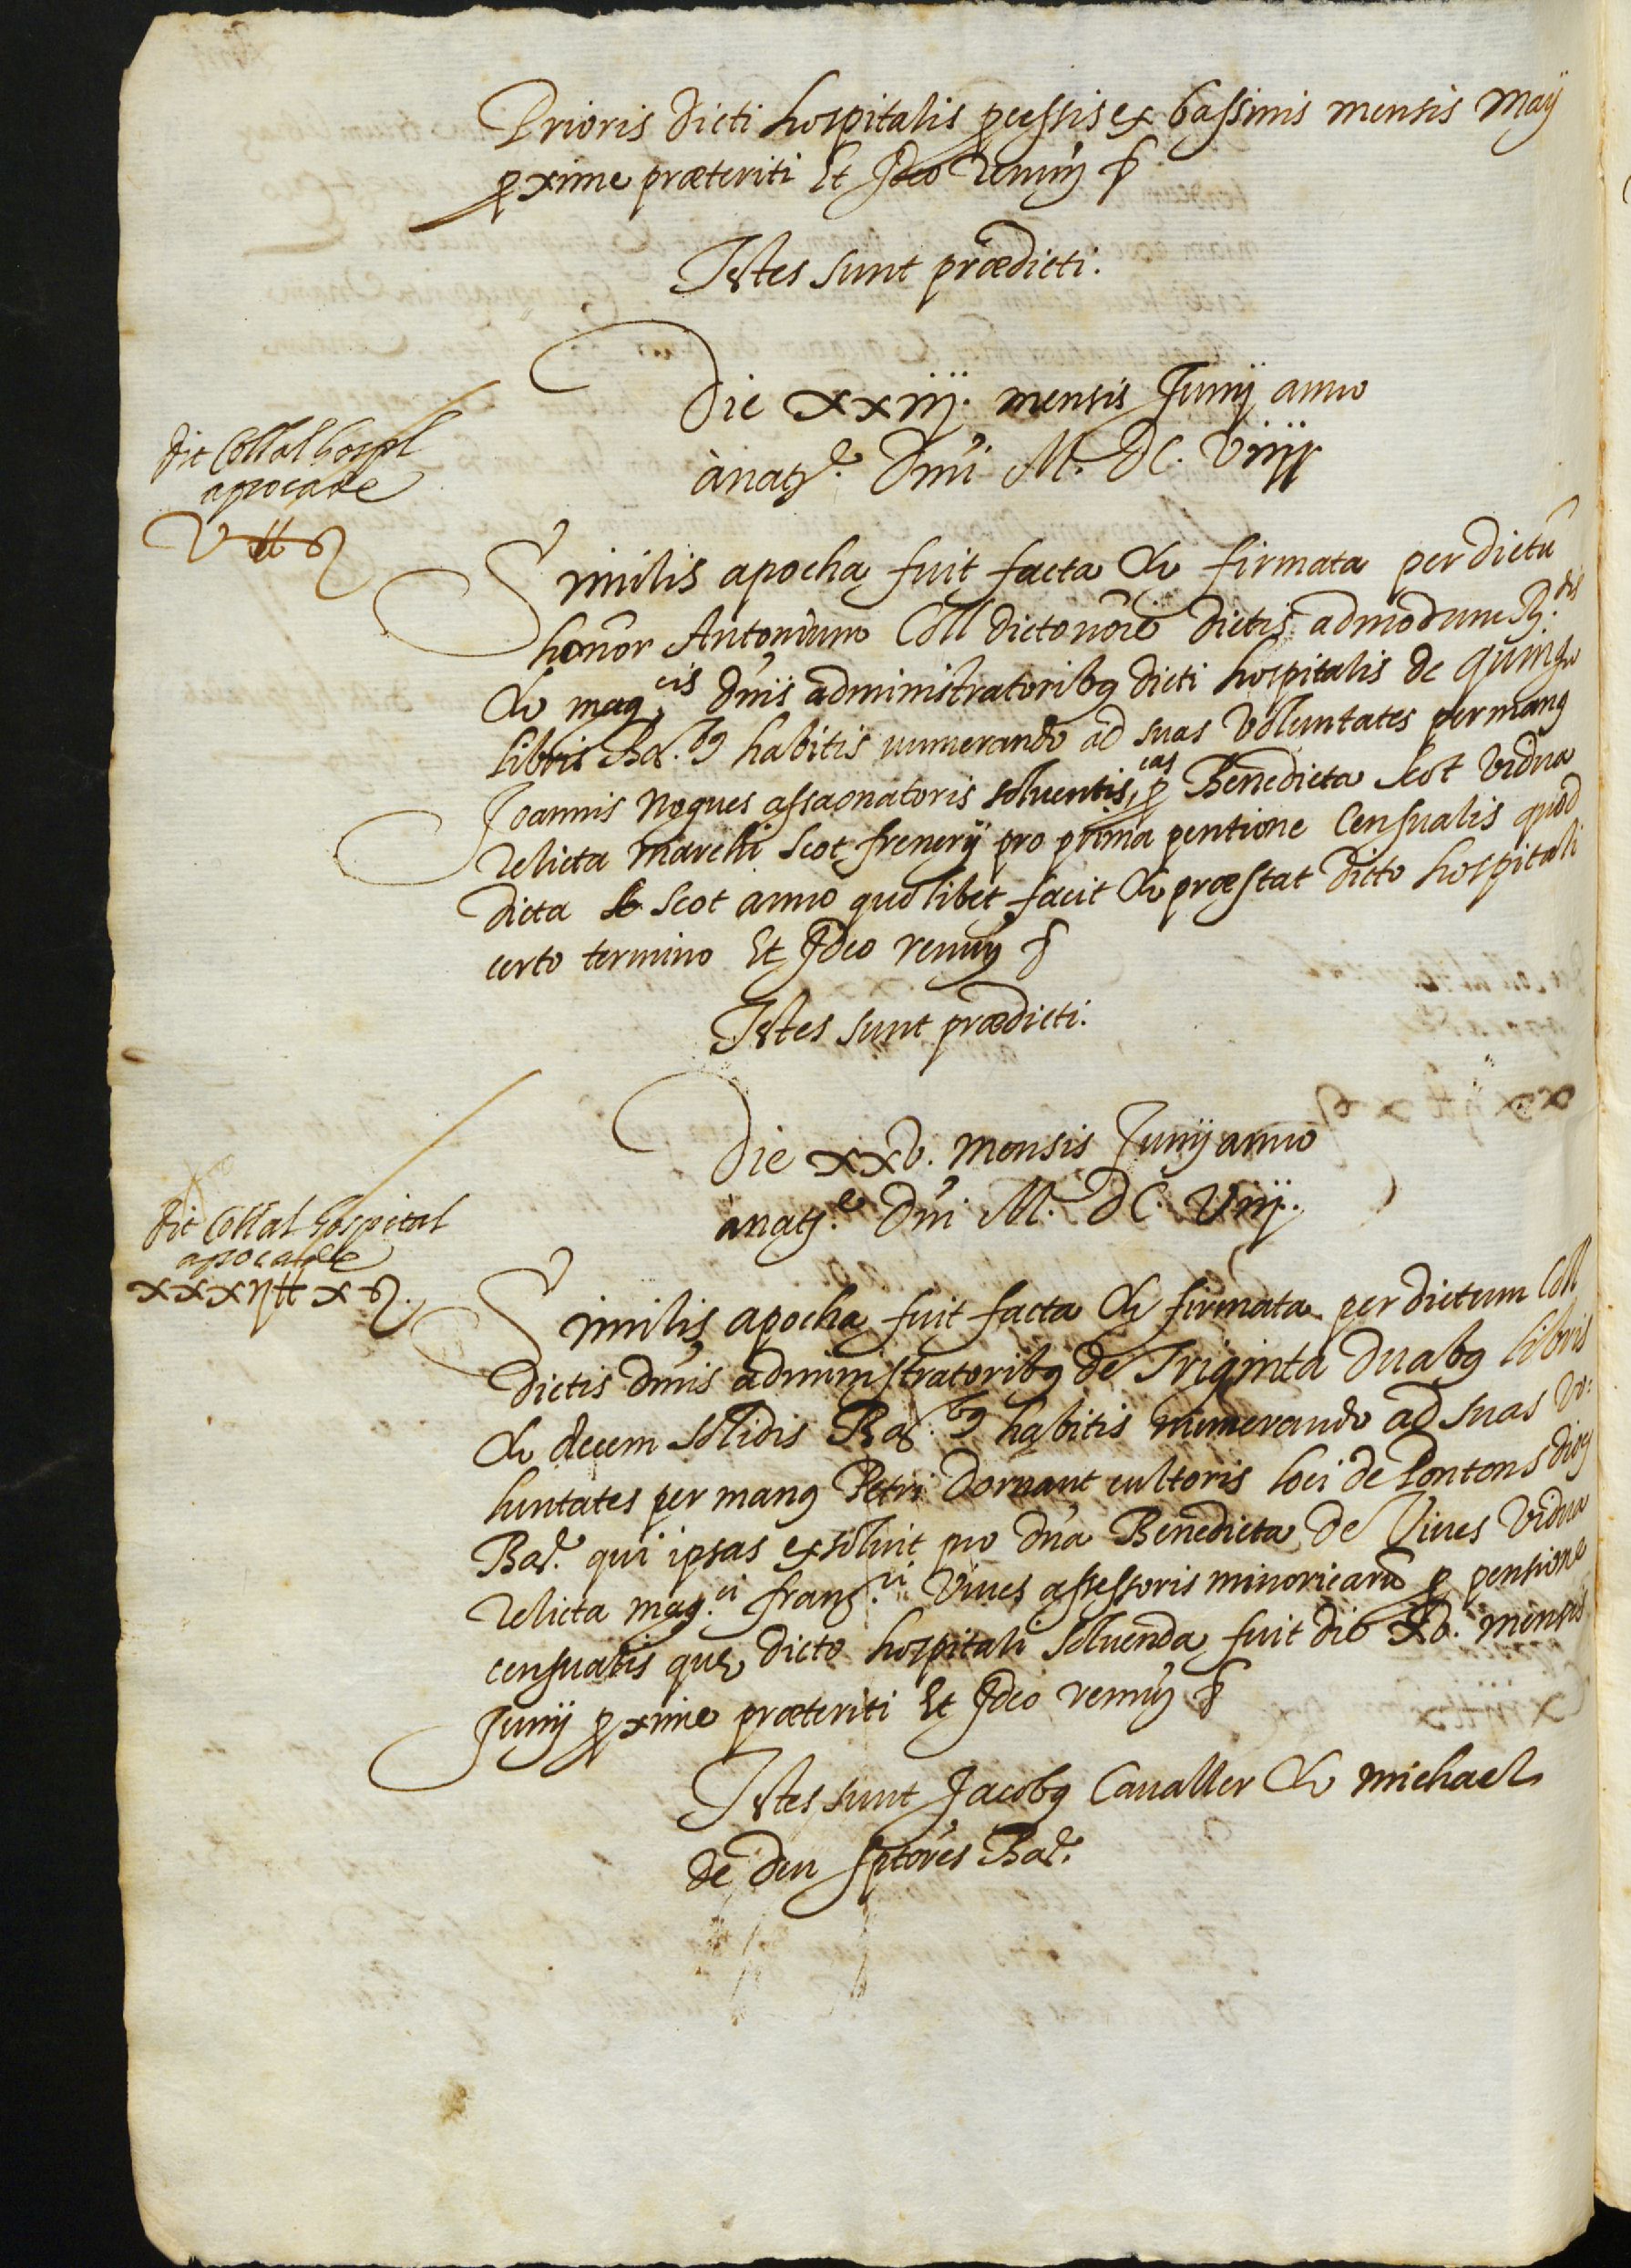 Prioris dicti hospitalis pcessis ex bassinis mensis Maÿ
pxime præteriti Et Ideo renun̄ &
Testes sunt prædicti.
Die xxiij. mensis Junij anno
à nat.e Dn̄i M. DC. Viiij
dit Coll al hospl
apoca de
V ₶ s
Similis apocha fuit facta & firmata per dictū
honor Antonium Coll dicto nōie dictis admodum R.dis
& mag.cis dn̄is administratoribq dicti hospitalis de quinqz
libris Ba.bq habitis numerando ad suas voluntates per manq
Joannis Nogues assaonatoris solventis eas p Benedicta Scot vidua
relicta Marchi Scot frenerij pro prima pentione Censualis quod
dicta Scot anno quolibet facit & præstat dicto hospitali
certo termino Et Ideo renun̄ &
Testes sunt prædicti.
Die xxv. mensis Junij anno
à nat.e Dn̄i M. DC. Viiij.
dit Coll al hospital
apoca de
xxxij ₶ x s.
Similis apocha fuit facta & firmata per dictum Coll
dictis dn̄is administratoribq de Triginta duabq libris
& decem solidis Ba.bq habitis numerando ad suas vo:
luntates per manq Petri Dornaut cultoris loci de Pontons diocꝭ
Bar. qui ipsas exsoluit pro dn̄a Benedicta de Viues vidua
relicta mag.ci franc.ci Viues assessoris minoricarū p pensione
censualis quę dicto hospitali soluenda fuit die xv. mensis
Junij pxime præteriti Et Ideo renun̄ &
Testes sunt Jacobq Cavaller & Michael
de deu sptores Bar.